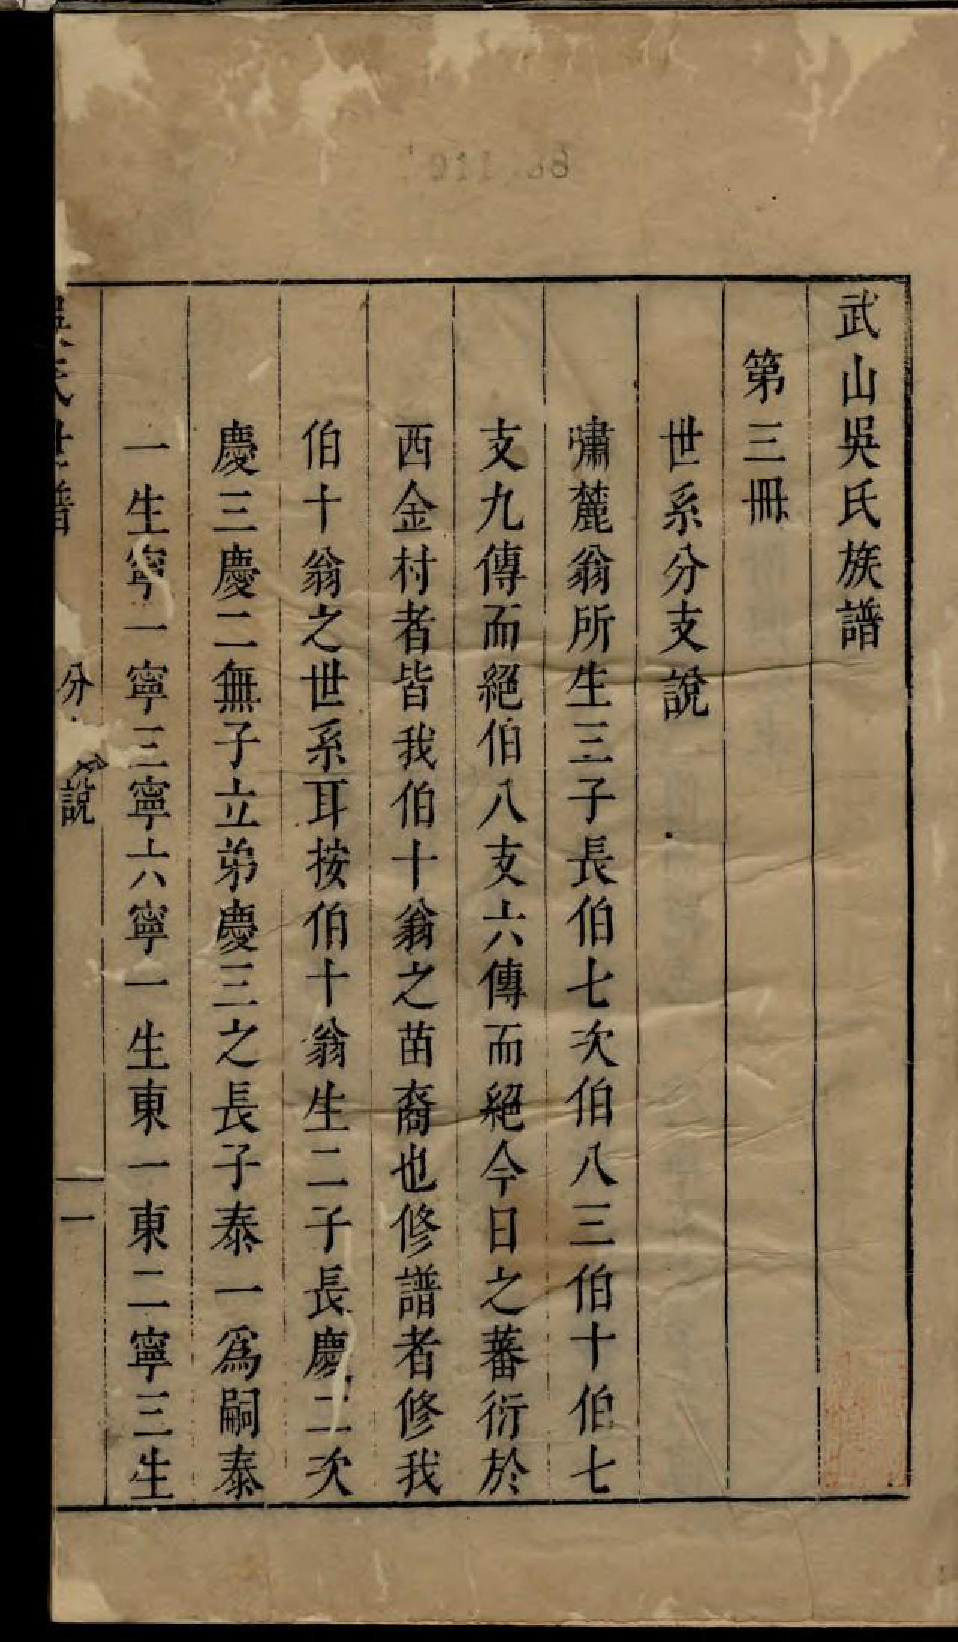 武山吳氏族譜
第三冊
世系分支說
嘯麓翁所生三子長伯七次伯八三伯十伯七
支九傳而絕伯八支六傳而絕今日之蕃衍於
西金村者皆我伯十翁之苗裔也修譜者修我
伯十翁之世系耳按伯十翁生二子長慶二次
慶三慶二無子立弟慶三之長子泰一爲嗣泰
一生寧一寧三寧六寧一生東一東二寧三生
吳氏世譜 分 說 一